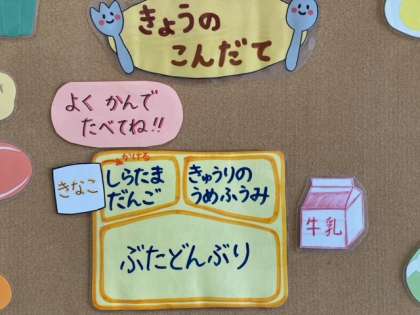 きょうの
こんだて
よく かんで
たべてね!!
かける
きなこ
しらたま
だんご
きゅうりの
うめふうみ
ぶたどんぶり
牛乳